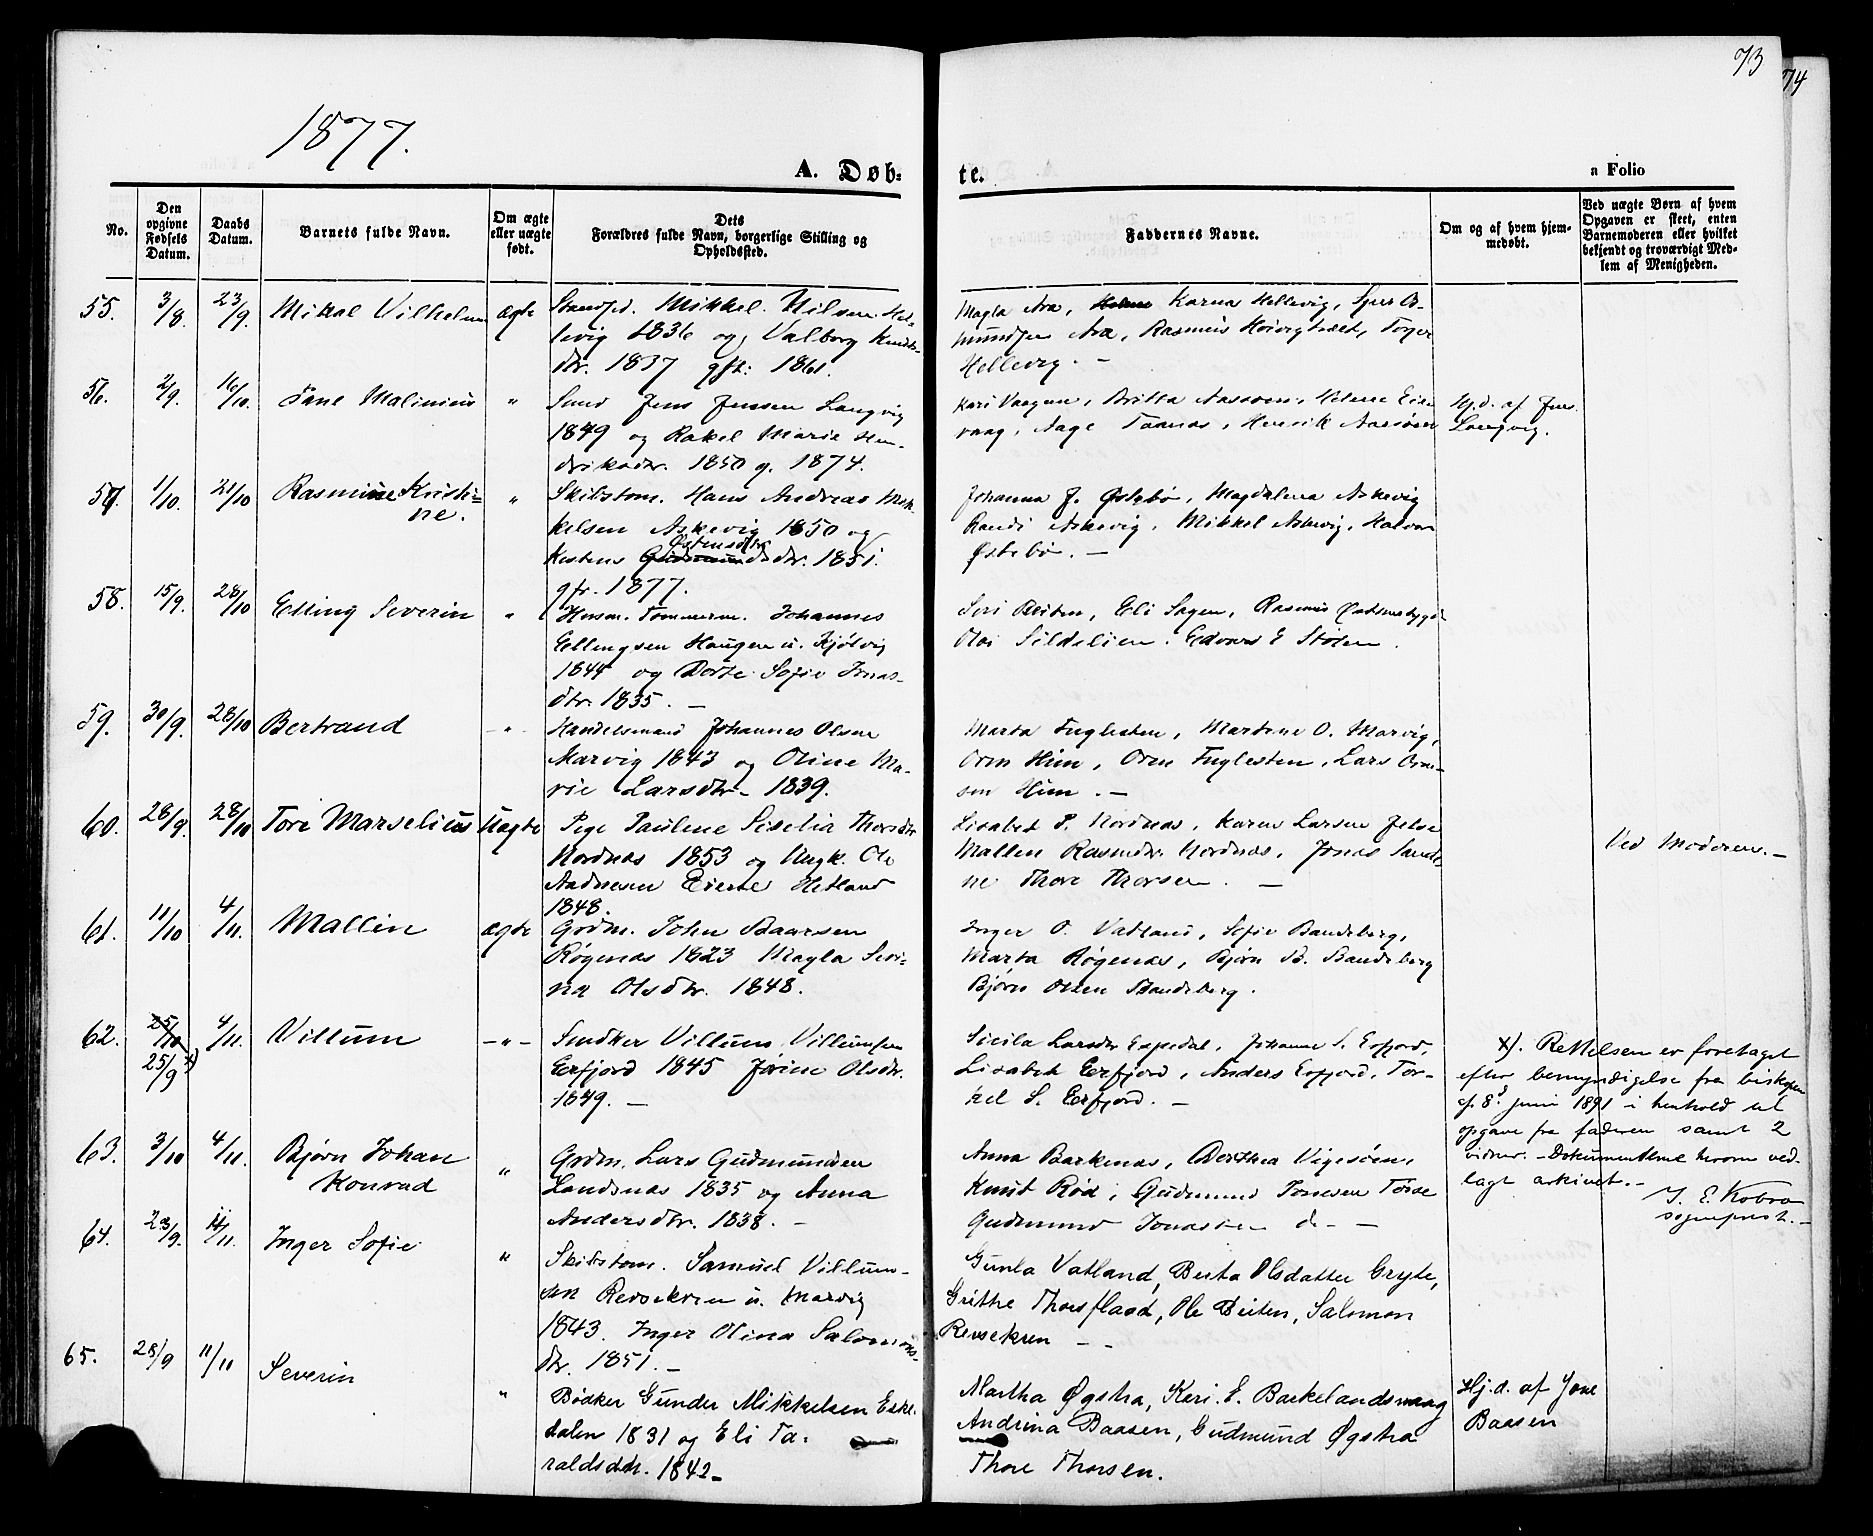 73
74
1877.
A. Døb-
te.
a Folio
No.
Den
opgivne
Fødsels
Datum.
Daabs
Datum.
Barnets fulde Navn.
Om ægte
eller uægte
født.
Dets
Forældres fulde Navn, borgerlige Stilling og
Opholdssted.
Faddernes Navne.
Om og af hvem hjem-
medøbt.
Ved uægte Børn af hvem
Opgaven er skeet, enten
Barnemoderen eller hvilket
bekjendt og troværdigt Med-
lem af Menigheden.
55. 3/8 23/9 Mikal Vilhelm ægte
Strandsd. Mikkel Nilsen Hel-
levig 1836 og Valborg Knuds-
dtr. 1837 gft: 1861.
Magla Ara, Karna Hellevig, Sjur As-
mundsen Ara, Rasmus, Torger
Hellevig. —
56. 2/9. 16/10. Malinius "
Jens Jensen Langvig
1849 og Rakel Marie Hen-
driksdtr. 1850 g. 1874.
Kari Vaagen, Britta Aasoen, Helene Eier
vaag, Aage Taanas, Henrik Aasoen
Hj.d. af Jens
Langvig.
57. 1/10. 21/10 Rasmine Kristi-
ne. "
Skibstom. Hans Andreas Mik-
kelsen Askevig 1850 og
Østensdtr.
Kestens Gudmundsdtr. 1851.
gft. 1877.
Johanna J. Østebø, Magdalena Askevig
Randi Askevig, Mikkel Askevig, Halvor
Østebø. —
58. 15/9. 28/10 Elling Severin "
Husm. Tømmerm. Johannes
Ellingsen Haugen u. Hjølvig
1844 og Dorte Sofie Jonas-
dtr. 1835. —
Siri Beiten, Eli Sagen, Rasmus
Sildelien. Edvard E Stølen.
59. 30/9. 28/10 Bertrand - " -
Handelsmand Johannes Olsen
Marvig 1843 og Oline Ma-
rie Larsdtr. 1839.
Marta Fuglesten, Martene O. Marvig,
Orm Hiim, Orm Fuglesten, Lars Orm-
sen Hiim. —
60. 28/9. 28/10 Tore Marselius Uægte
Pige Paulene Siselia Thorsdtr
Nordnæs 1853 og Ungk. Ole
Aadnesen Eierte Hetland
1848.
Lisabet P. Nordnæs, Karen Larsen Jelse
Mallen Rasmdr. Nordnæs, Jonas Sande-
ne Thore Thorsen. —
Ved Moderen. —
61. 11/10 4/11. Mallin ægte
Grdm. John Baarsen
Røgenæs 1823 Magla Seri-
na Olsdtr. 1848.
Inger O. Vatland, Sofie Bandeberg,
Marta Røgenæs, Bjørn B. Bandeberg
Bjørn Olsen Bandeberg.
62. 25/10 4/11. Villum - " -
25/9 x)
Smdker Villum Villumsen
Eerfjord 1845 Jørine Olsdtr.
1849. —
Sicila Larsdtr Espedal, Johanne S. Erfjord,
Lisabet Eerfjord, Anders Erfjord, Tor-
kel S. Eerfjord. —
x). Rettelsen er foretaget
efter bemyndigelse fra biskopen
af 8. juni 1891 i henhold til
opgave fra faderen samt 2
vidner. - Dokumenterne herom ved-
lagt arkivet. -
J. E. Kobro
sogneprest. -
63. 3/10 4/11. Bjørn Johan
Konrad "
Grdm. Lars Gudmundsen
Landsnæs 1835 og Anna
Andersdtr. 1838. —
Anna Barkenæs, Dorthea Vigesøen,
Knut Rød, Gudmund Tonesen Tøtse
Gudmund Jonassen d- —
64. 23/9. 11/11. Inger Sofie "
Skibstom. Samuel Villum-
sen Revsekren u. Marvig
1843. Inger Olina Salomons-
dtr. 1851. —
Gunla Vatland, Berta Olsdatter Gryte,
Grithe Thorsflaad, Ole Beiten, Salomon
Revsekren — -
65. 28/9 11/11 Severin "
Bødker Gunder Mikkelsen Eske-
dalen 1831 og Eli Ta-
raldsdtr. 1842 -
Martha Øgstra, Keri. E. Barkelandsvaag
Andrina Baasen, Gudmund Øgstra
Thore Thorsen.
Hj.d. af Jone
Baasen